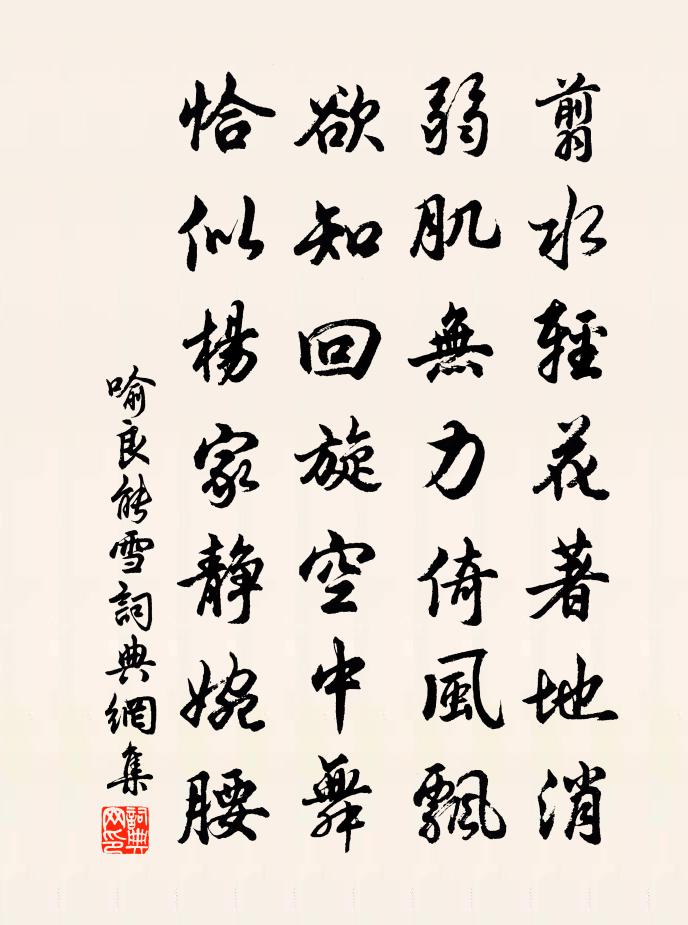 翦水輕花著地消
弱肌無力倚風飄
欲知回旋空中舞
恰似楊家静婉腰
喻良能雪詞典網集
詞典網印